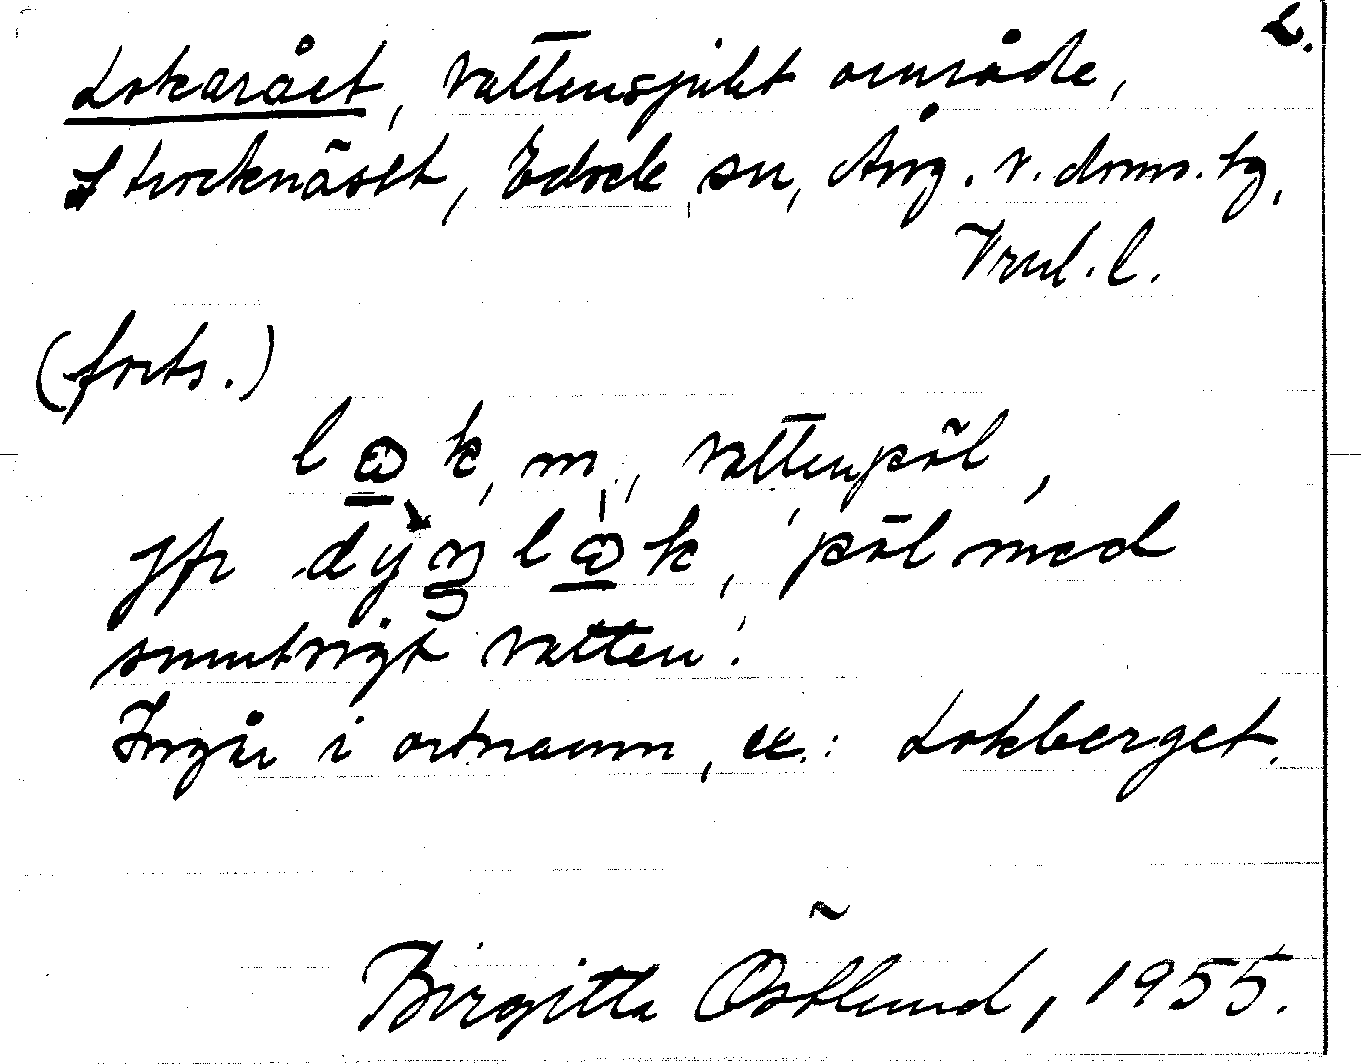 2.
Lokarået, vattensjukt område,
Strocknäset, Edsele sn, Ång. v. doms. tg,
Vnl. l.
(forts.)
lωk, m, 'vattenpöl',
jfr dyŋlωk, 'pöl med
smutsigt vatten'.
Ingår i ortnamn, ex.: Lokberget.
Birgitta Östlund, 1955.